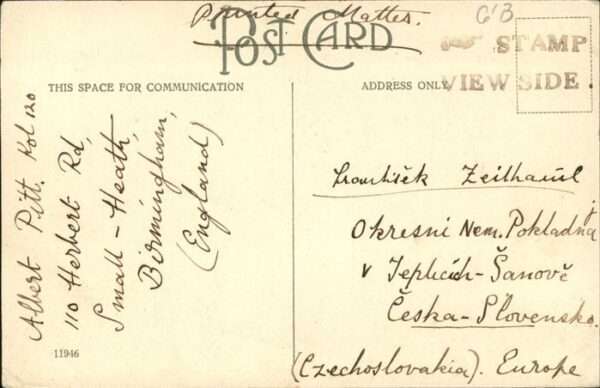 Printed Matter.
POST CARD
GB
STAMP
VIEW SIDE.
THIS SPACE FOR COMMUNICATION
ADDRESS ONLY
Albert Pitt. Kol 120
110 Herbert Rd,
Small-Heath,
Birmingham,
(England)
František Zeithaml
Okresní Nem. Pokladna
v Teplicích-Šanově
Česká-Slovensko.
(Czechoslovakia). Europe
11946